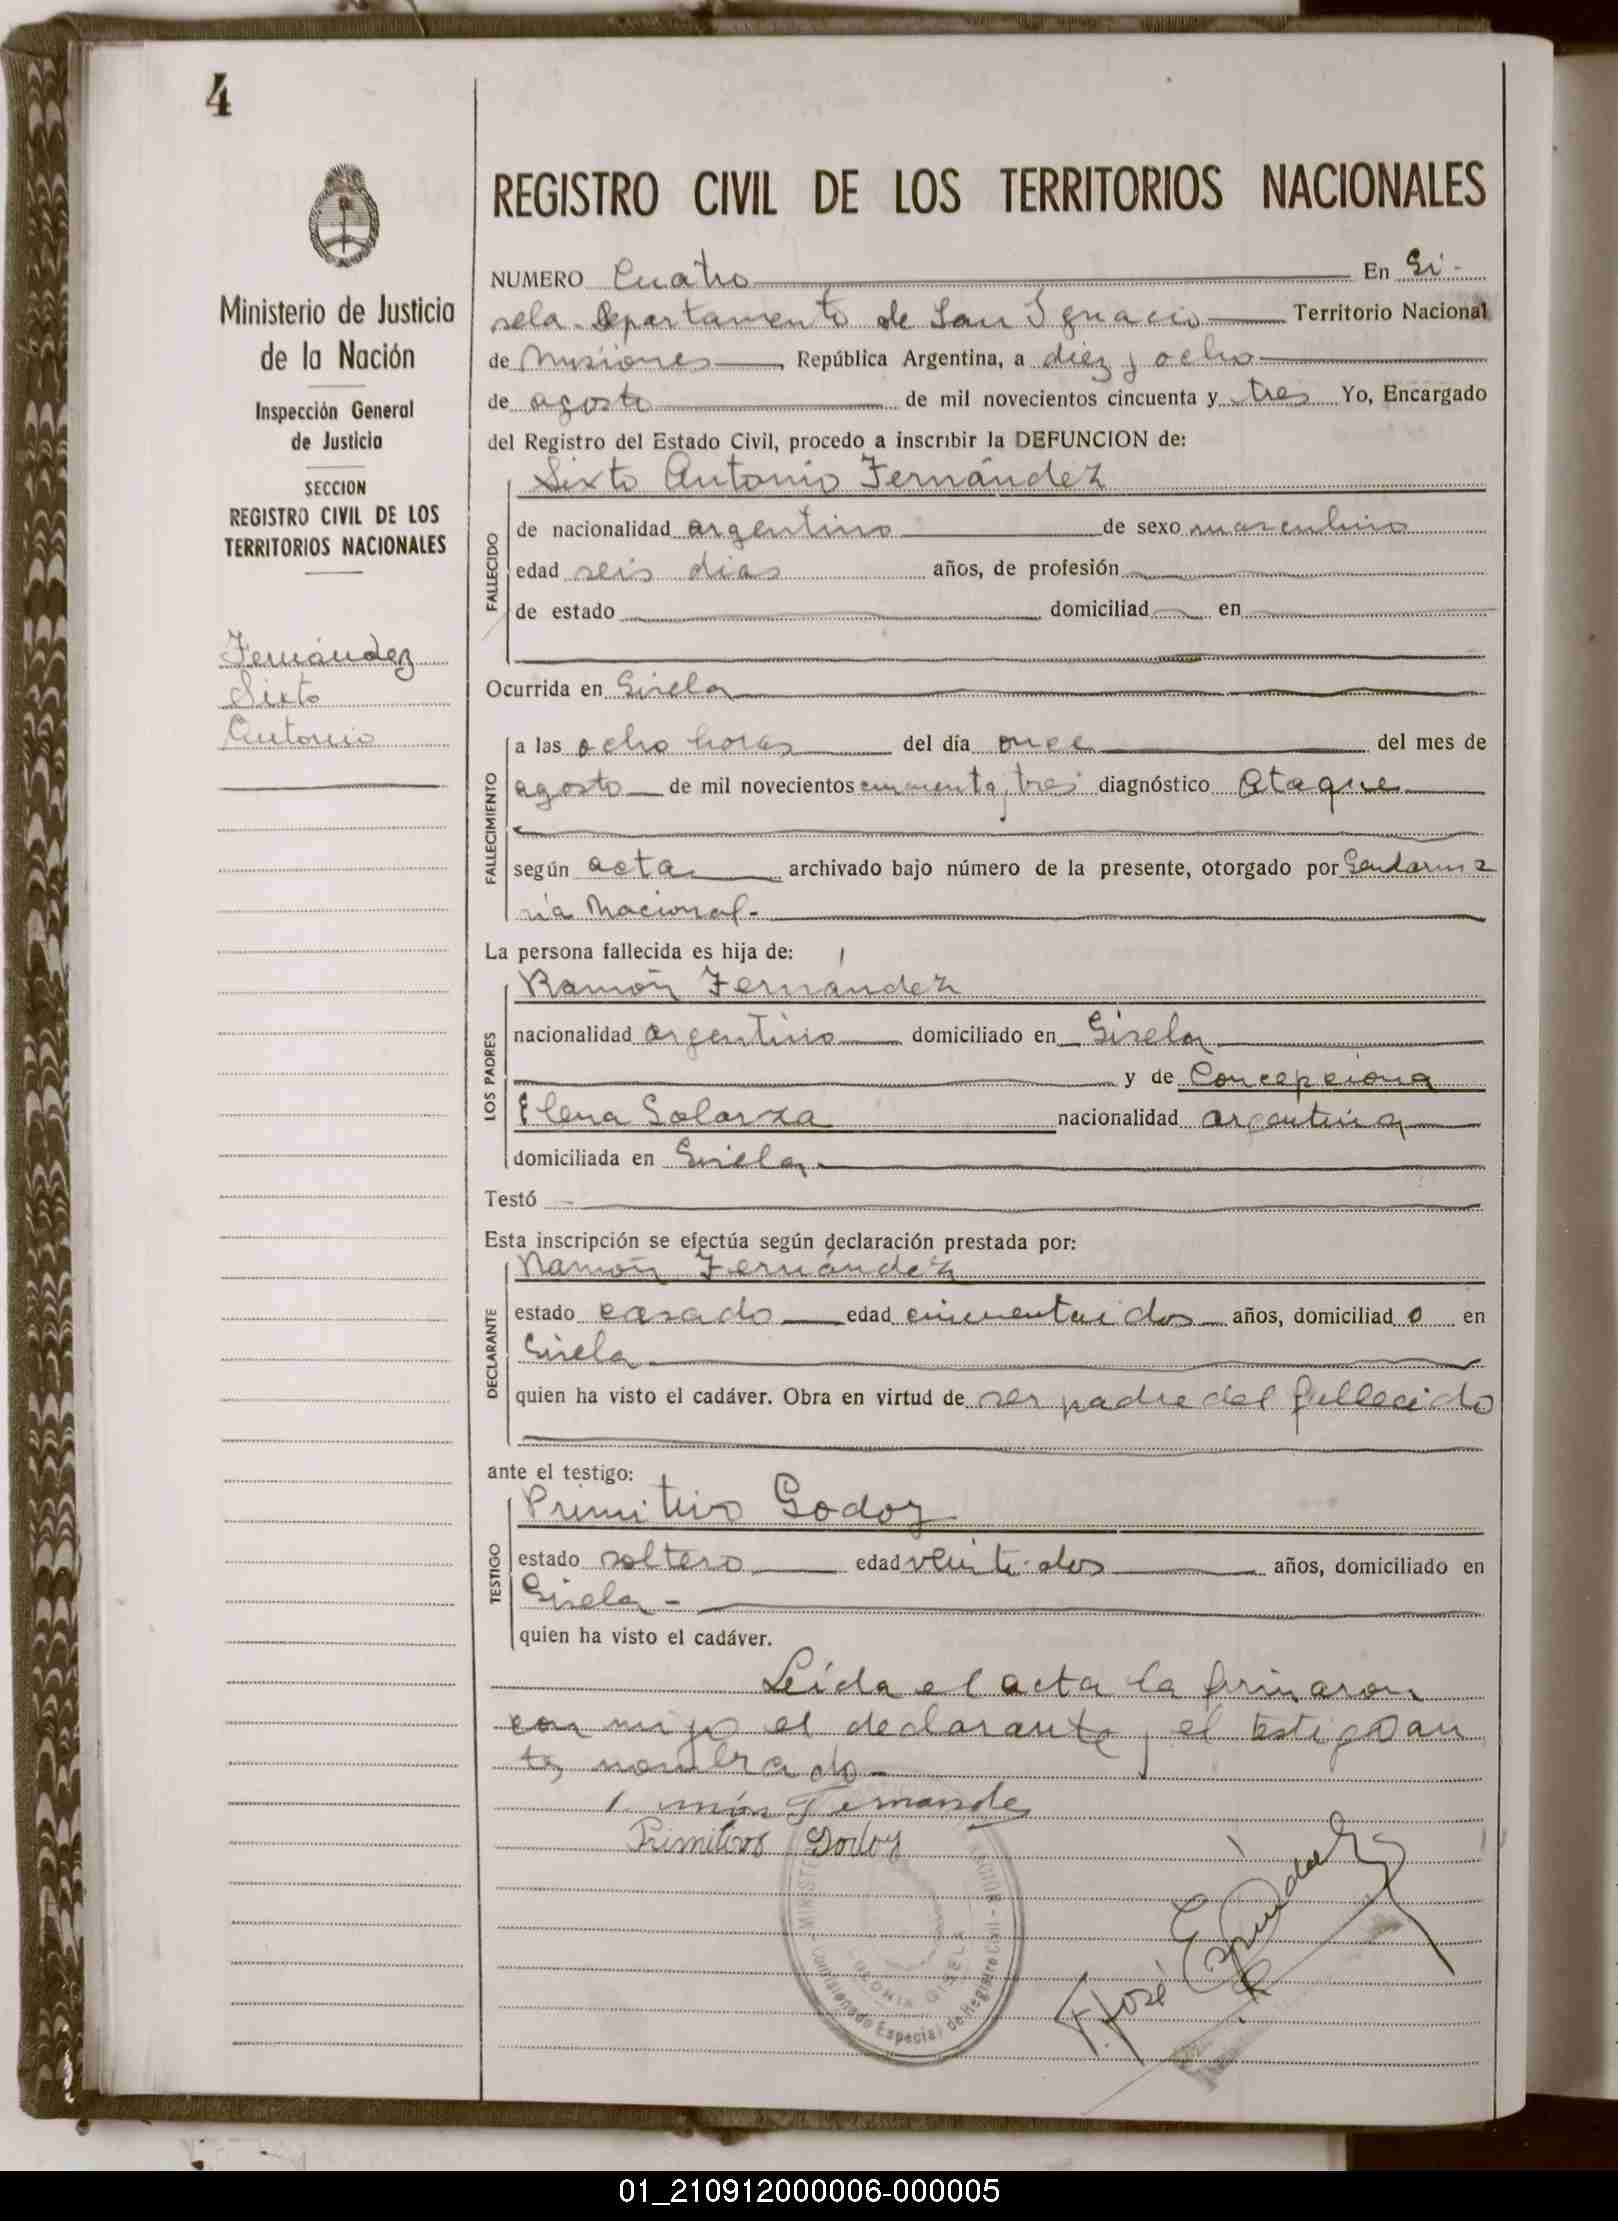 4
Ministerio de Justicia
de la Nación
Inspección General
de Justicia
SECCION
REGISTRO CIVIL DE LOS
TERRITORIOS NACIONALES
Fernández
Sixto
Antonio
REGISTRO CIVIL DE LOS TERRITORIOS NACIONALES
NUMERO Cuatro En Gi-
sela. Departamento de San Ignacio Territorio Nacional
de Misiones, República Argentina, a diez y ocho
de agosto de mil novecientos cincuenta y tres Yo, Encargado
del Registro del Estado Civil, procedo a inscribir la DEFUNCION de:
FALLECIDO
Sixto Antonio Fernández
de nacionalidad argentino de sexo masculino
edad seis dias años, de profesión
de estado domiciliad en
Ocurrida en Gisela
FALLECIMIENTO
a las ocho horas del día once del mes de
agosto de mil novecientos cincuenta y tres diagnóstico Ataque
según acta archivado bajo número de la presente, otorgado por Gendarme
ría Nacional.-
La persona fallecida es hija de:
LOS PADRES
Ramón Fernández
nacionalidad argentino domiciliado en Gisela
y de Concepciona
Elena Solarza nacionalidad argentina
domiciliada en Gisela.
Testó
Esta inscripción se efectúa según declaración prestada por:
DECLARANTE
Ramón Fernández
estado casado edad cincuentaidos años, domiciliad o en
Gisela
quien ha visto el cadáver. Obra en virtud de ser padre del fallecido
ante el testigo:
TESTIGO
Primitivo Godoy
estado soltero edad veinte dos años, domiciliado en
Gisela -
quien ha visto el cadáver.
Leída el acta la firmaron
con migo el declarante y el testigo an
tes nombrado-
Fernandes
Primitivo Godoy
MINISTE
Comisionado Especial de Registro Civil
COLONIA GISELA
José
01_210912000006-000005